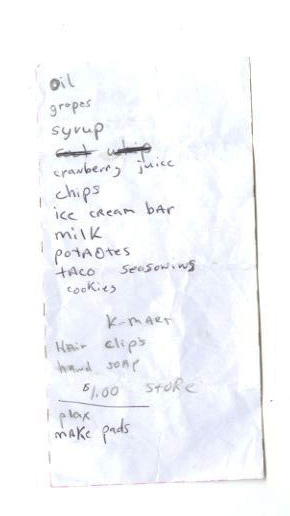 oil
grapes
syrup
cranberry juice
chips
ice cream bar
milk
potAotes
tAco seasoning
cookies
K-mart
Hair clips
hand soap
$1.00 store
plax
make pads